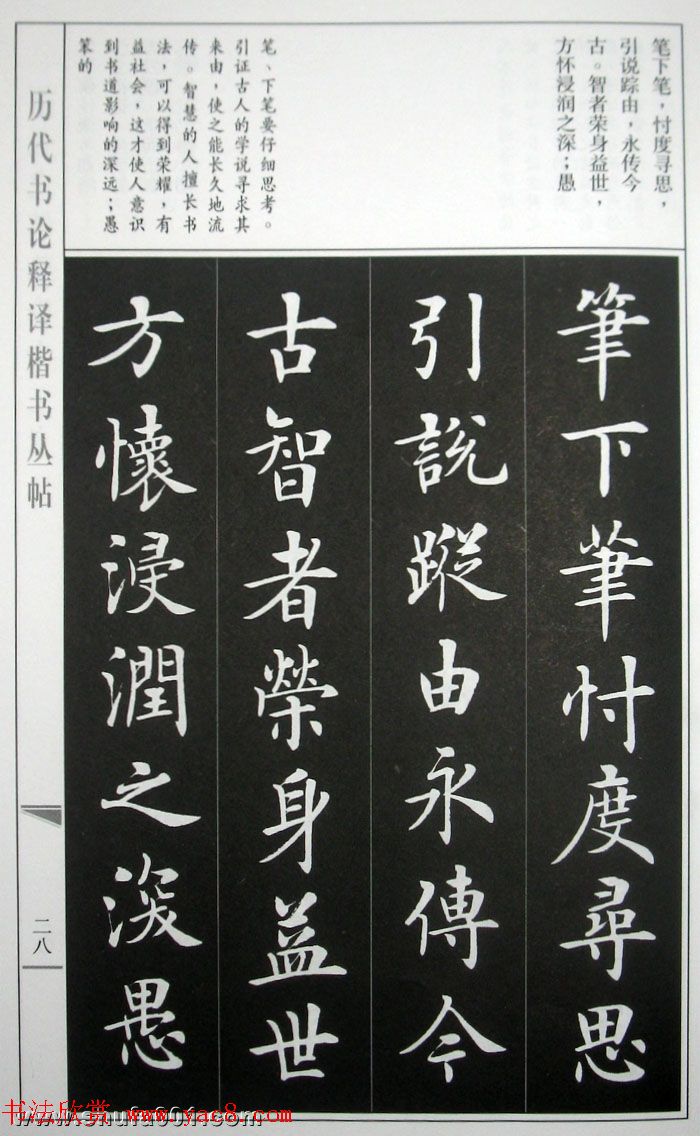 笔下笔，忖度寻思，
引说踪由，永传今
古。智者荣身益世，
方怀浸润之深；愚
笔、下笔要仔细思考。
引证古人的学说寻求其
来由，使之能长久地流
传。智慧的人擅长书
法，可以得到荣耀，有
益社会，这才使人意识
到书道影响的深远；愚
笨的
筆下筆忖度尋思
引説蹤由永傳今
古智者榮身益世
方懷浸潤之深愚
历代书论释译楷书丛帖
二八
书法欣赏 www.yac8.com